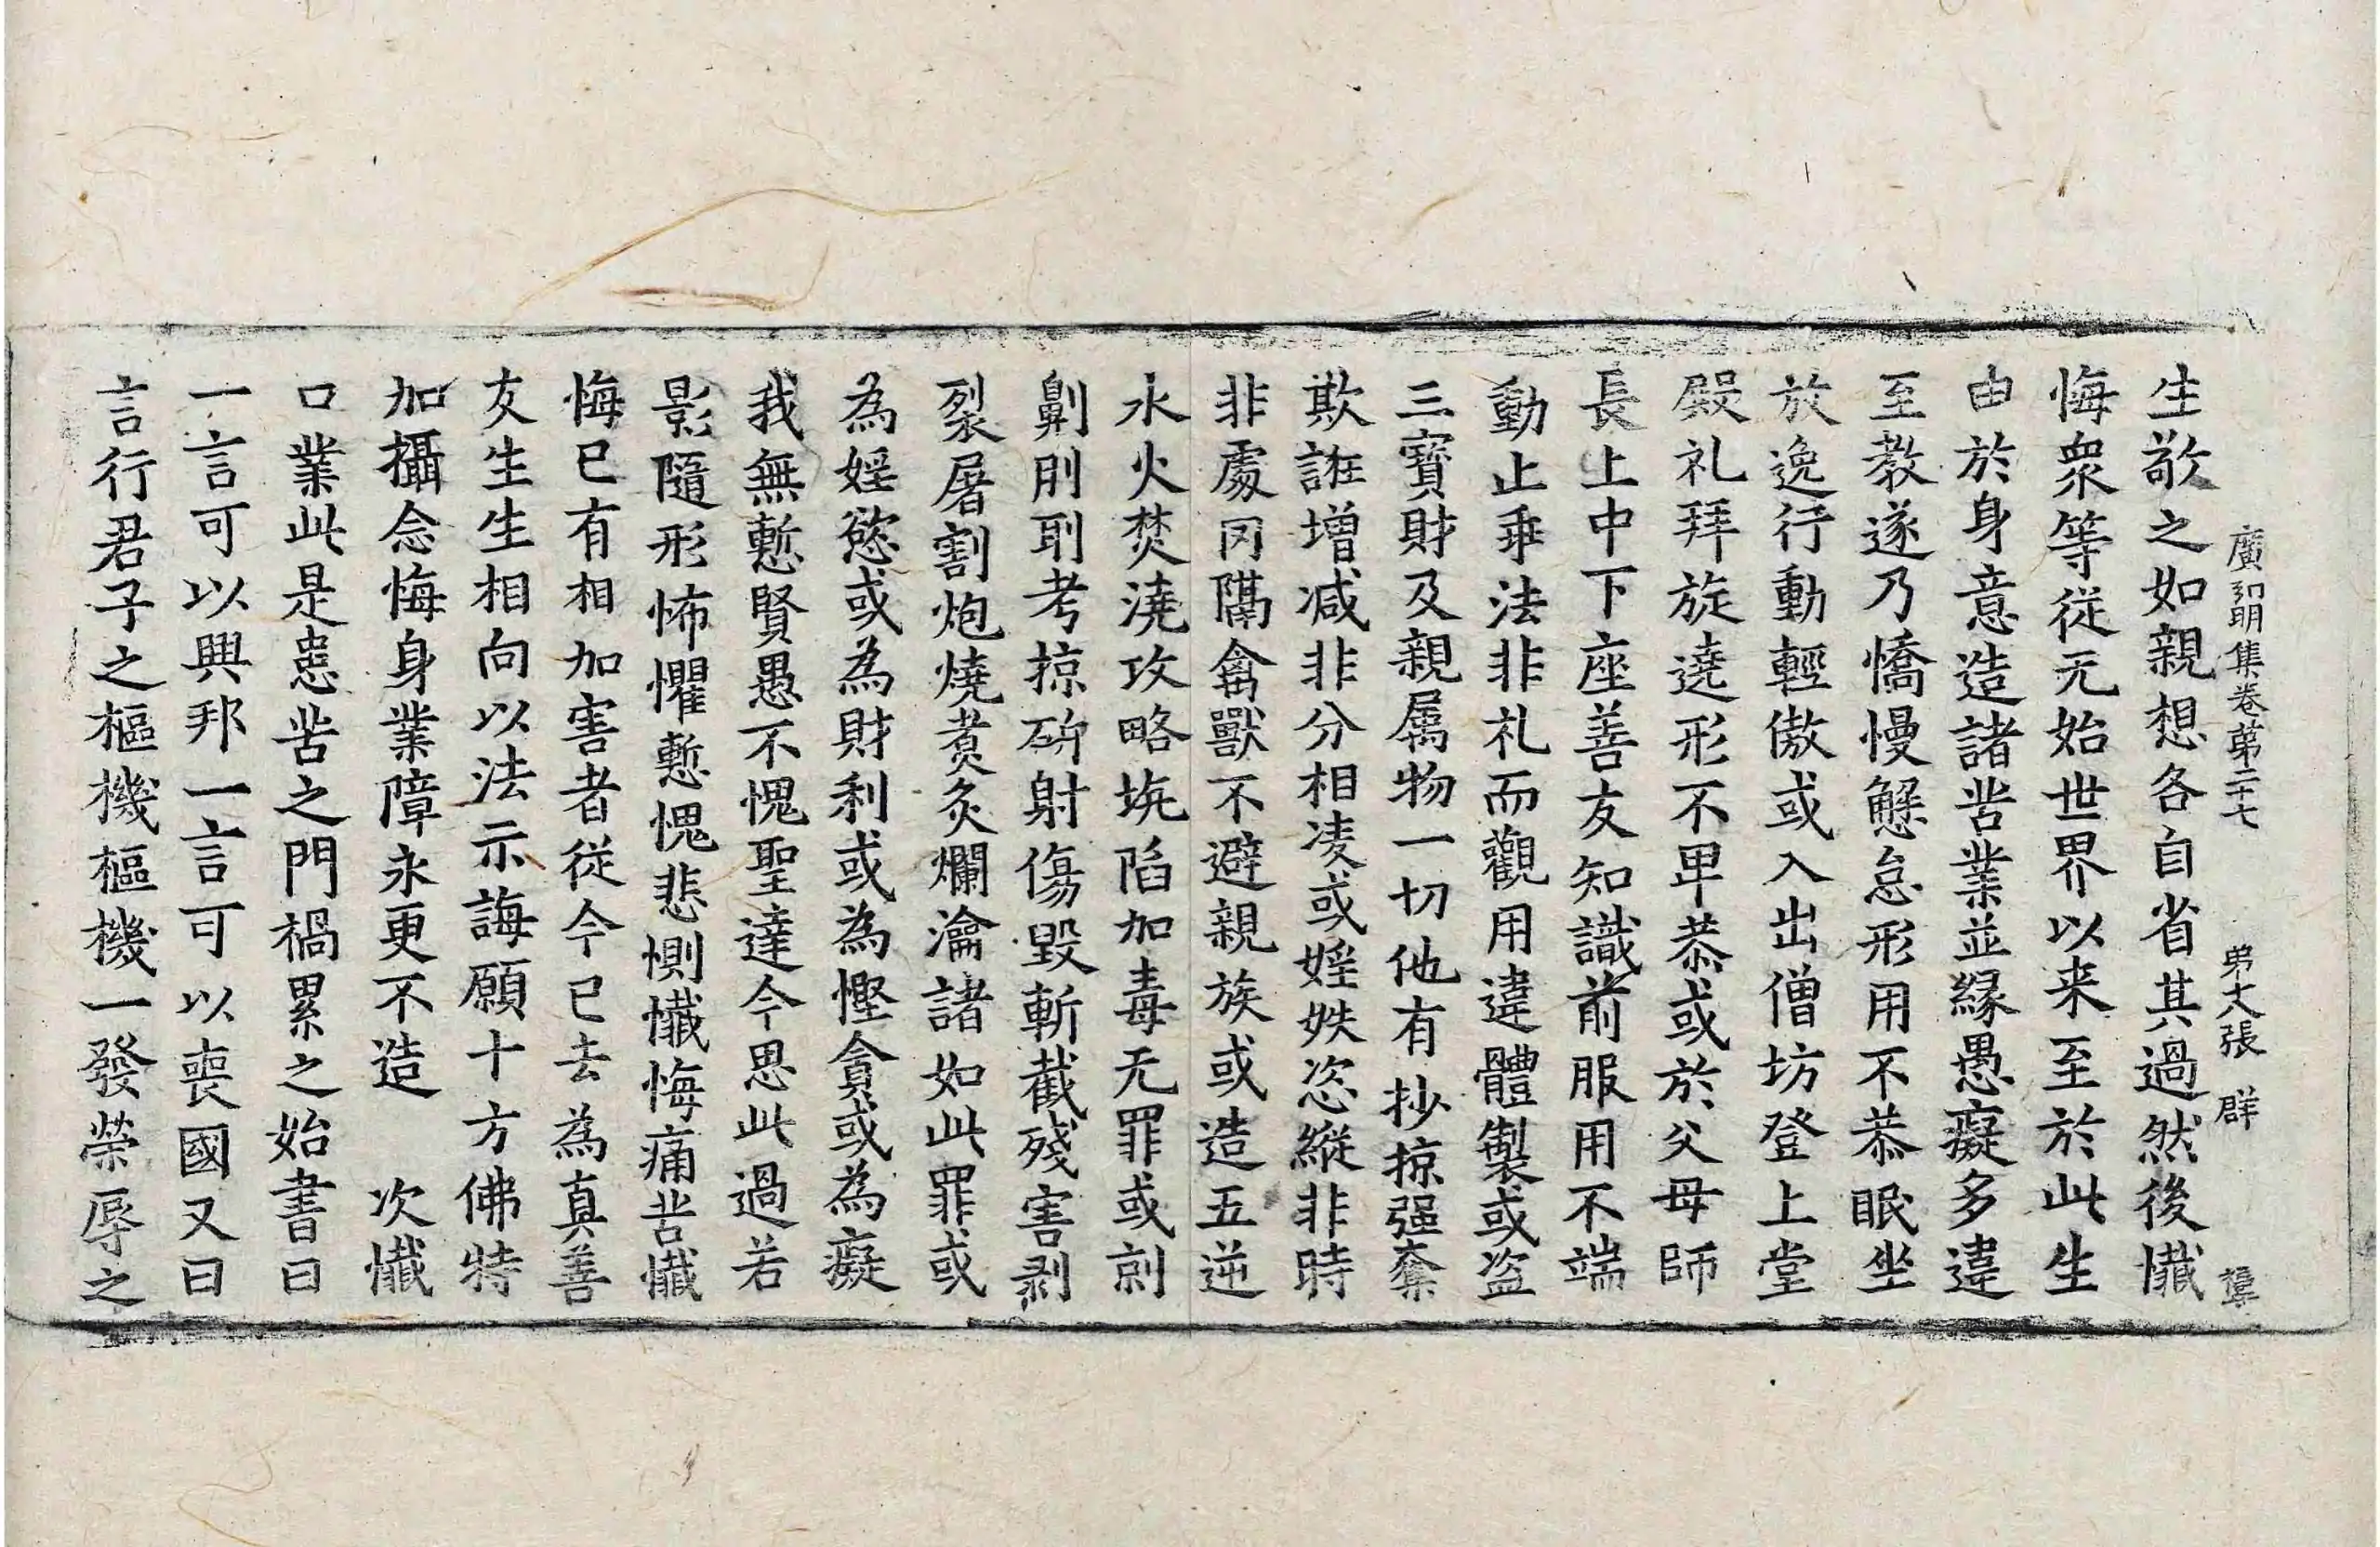 廣弘明集卷第二十七　弟六張　群
生敬之如親想各自省其過然後懺
悔衆等従无始世界以来至於此生
由於身意造諸苦業並緣愚癡多違
至教遂乃憍慢懈怠形用不恭眠坐
放逸行動輕傲或入出僧坊登上堂
殿礼拜旋遶形不卑恭或於父母師
長上中下座善友知識前服用不端
動止乖法非礼而觀用違體製或盜
三寶財及親屬物一切他有抄掠强奪
欺誑增減非分相凌或婬妷恣縱非時
非處罔隔禽獸不避親族或造五逆
水火焚澆攻略坑陷加毒无罪或刻
劓刖刵考掠斫射傷毀斬截殘害剥
裂屠割炮燒煮炙爛瀹諸如此罪或
為婬慾或為財利或為慳貪或為癡
我無慙賢愚不愧聖達今思此過若
影隨形怖懼慙愧悲惻懺悔痛苦懺
悔已有相加害者従今已去為真善
友生生相向以法示誨願十方佛特
加攝念悔身業障永更不造　次懺
口業此是患苦之門禍累之始書曰
一言可以興邦一言可以喪國又曰
言行君子之樞機樞機一發榮辱之